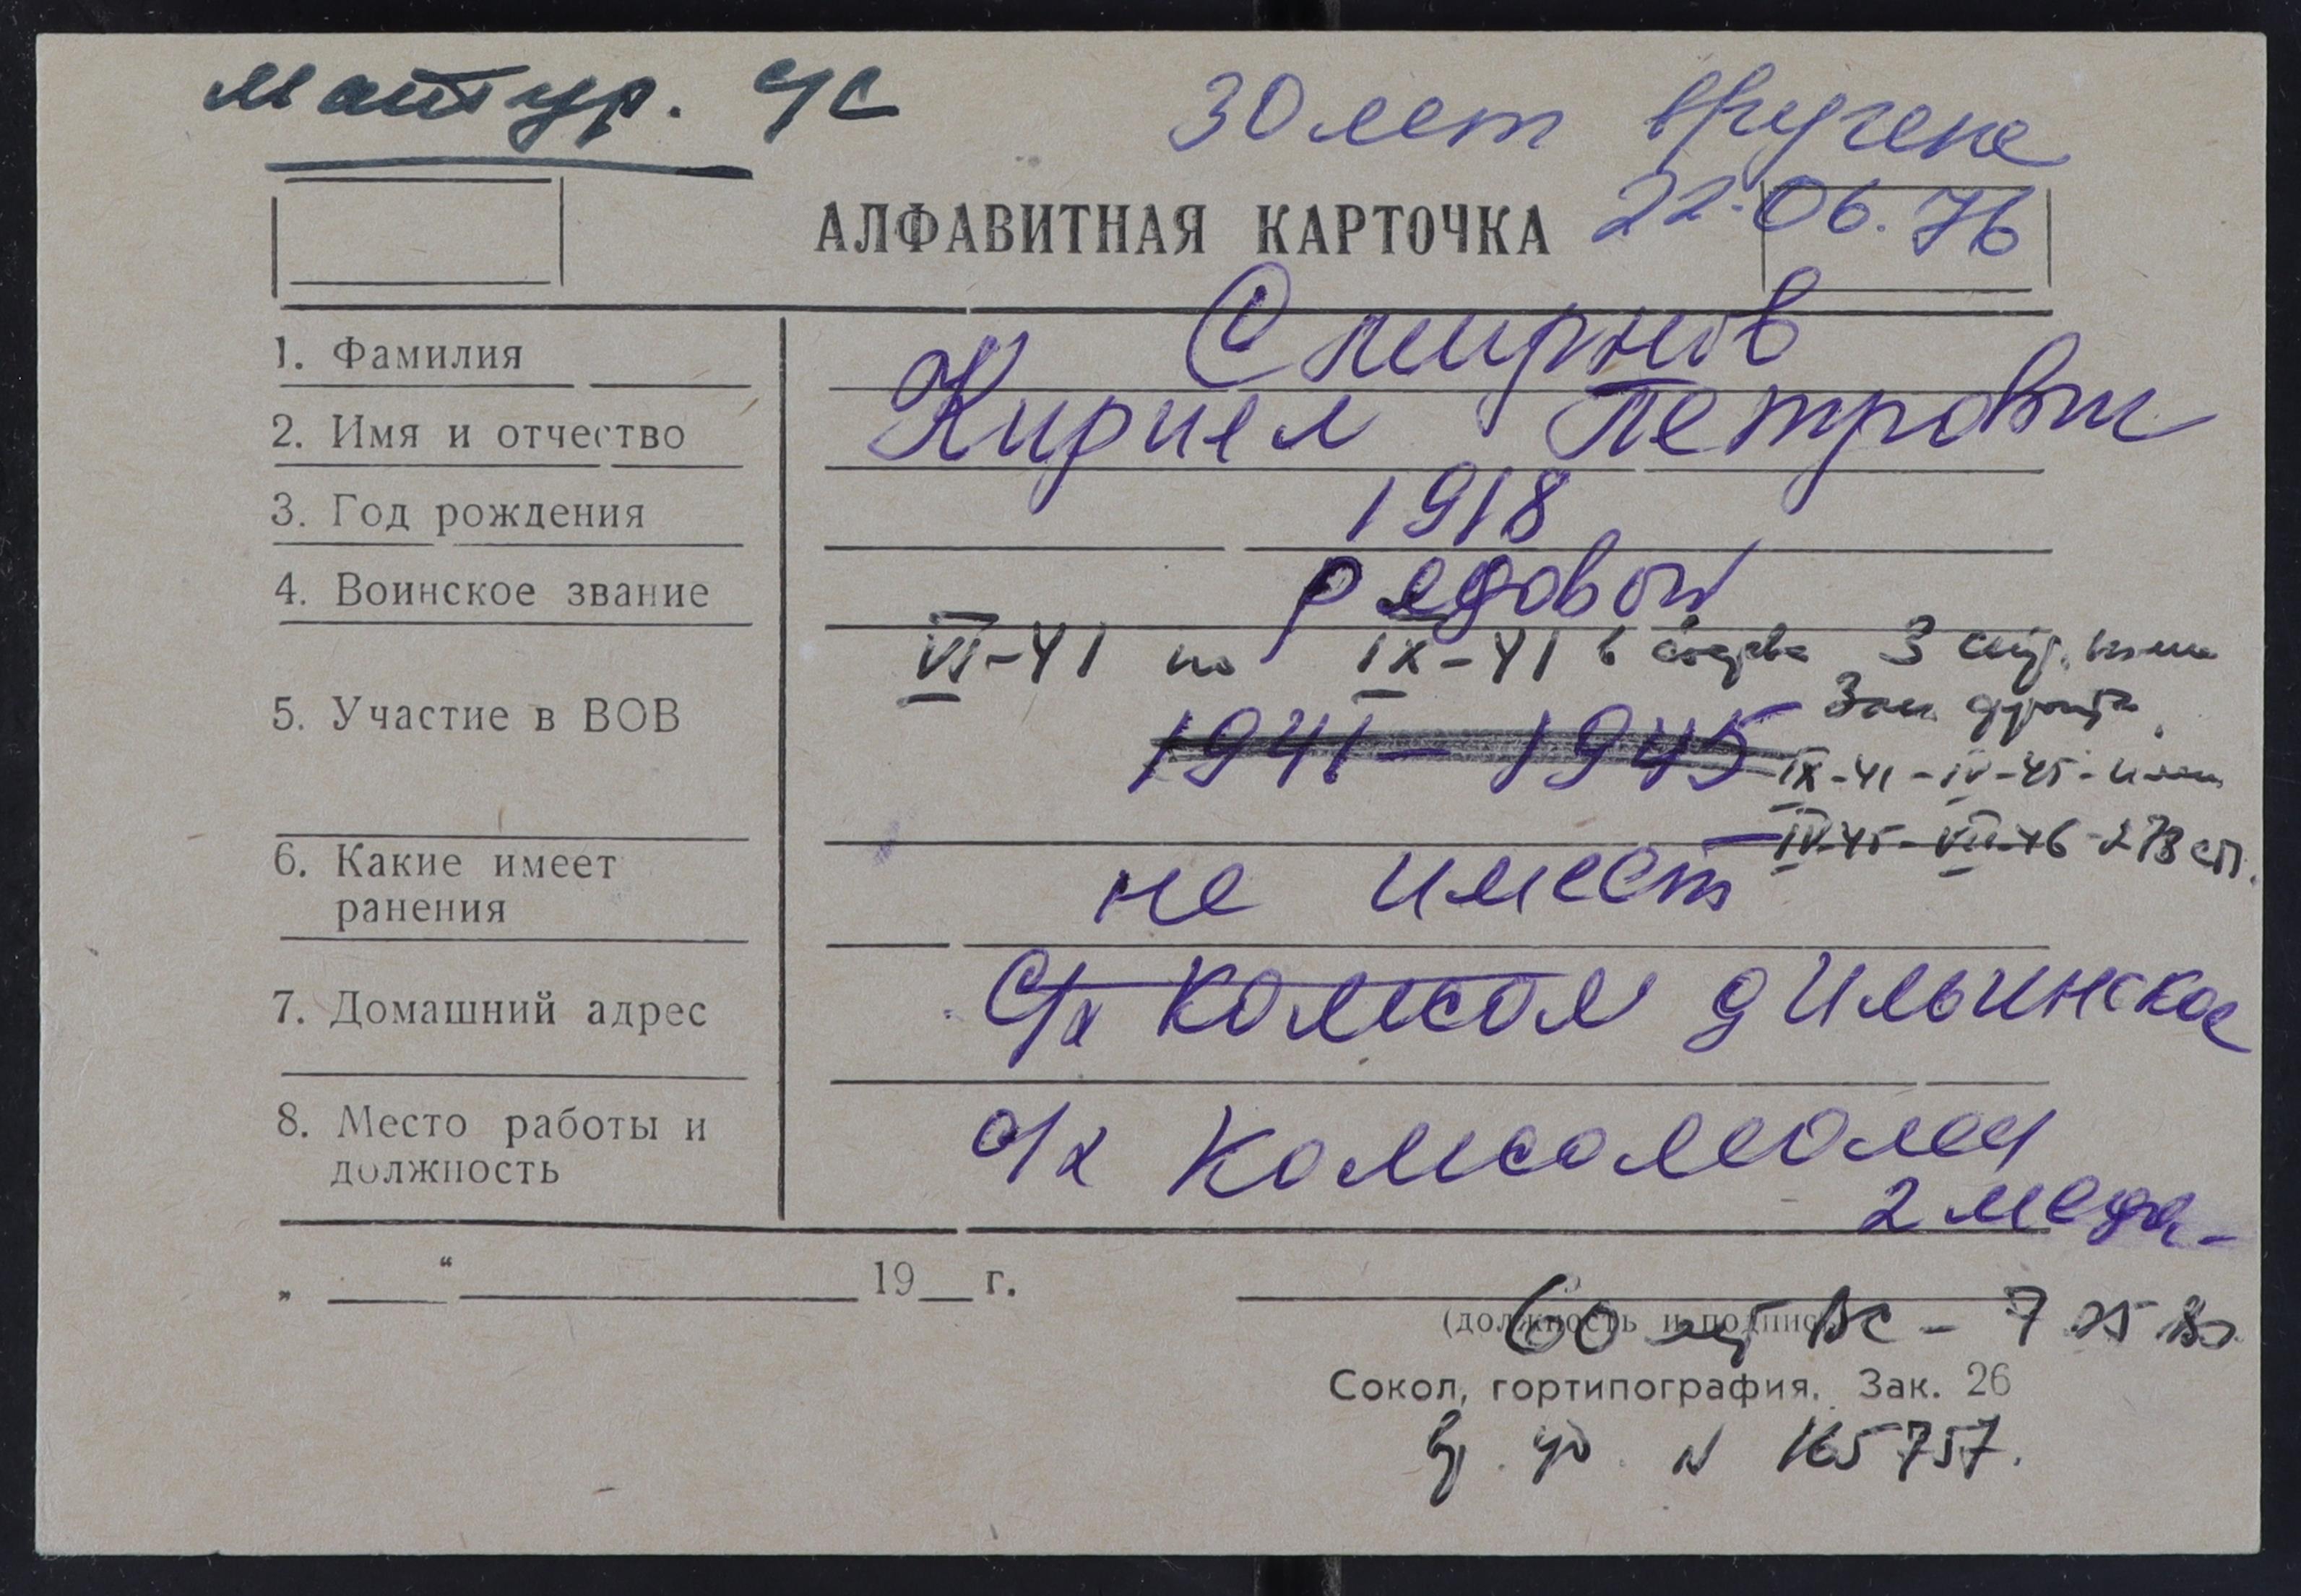 Мантур. с/с
30 лет вручена
22.06.76
АЛФАВИТНАЯ КАРТОЧКА
1. Фамилия Смирнов
2. Имя и отчество Кирилл Петрович
3. Год рождения 1918
4. Воинское звание рядовой
VI-41 по IX-41 в 3
Зап. фронта.
5. Участие в ВОВ 1941 – 1945
IX-41 – IV-45 -
IV-45 – VII-46 - 273 сп.
6. Какие имеет
ранения не имеет
7. Домашний адрес с/х д Ильинское
8. Место работы и
должность с/х Комсомолец
2 меда-
„ “ 19 г.
(должность и подпись)
60 лет ВС - 7
Сокол, гортипография. Зак. 26
уд. N 165757.